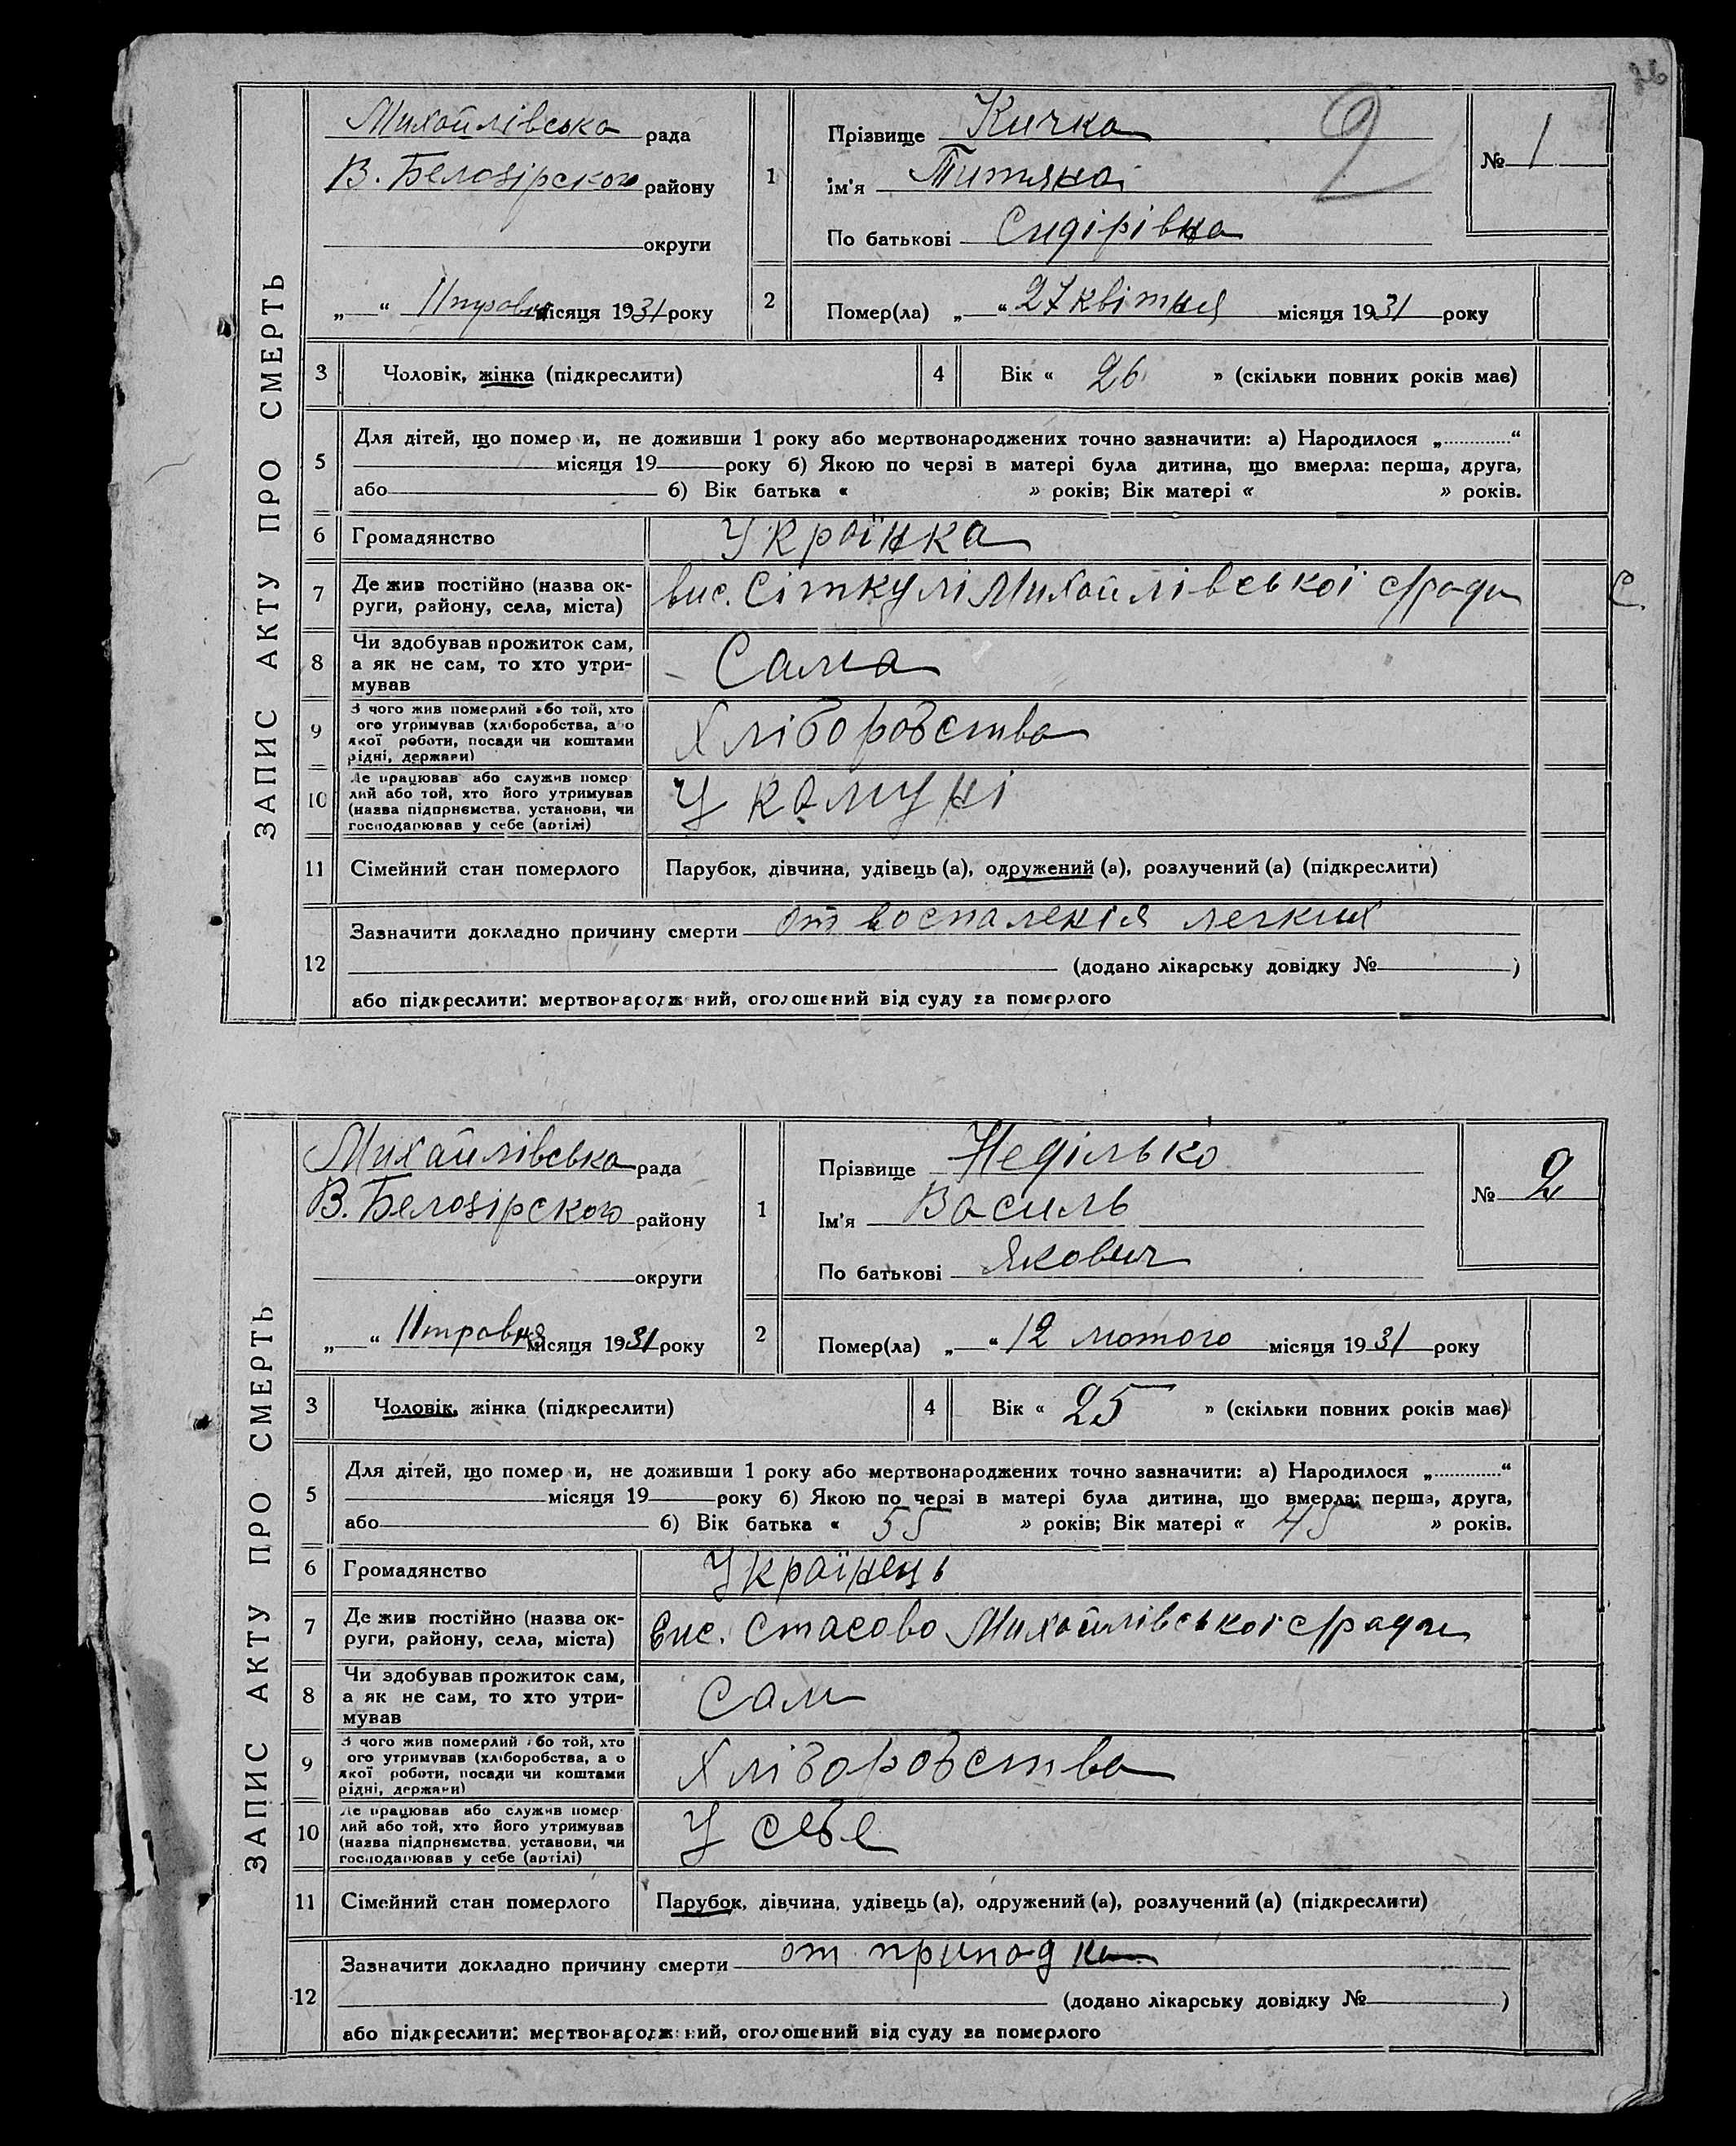 ЗАПИС АКТУ ПРО СМЕРТЬ
Михайлівська рада
В. Белозірского району
округи
„ “ 11 травня місяця 1931 року
1
Прізвище Кичка
ім'я Титяна
По батькові Сидірівна
2
№ 1
2 Помер(ла) „ “ 27 квітня місяця 1931 року
3 Чоловік, жінка (підкреслити)
4 Вік « 26 » (скільки повних років має)
5 Для дітей, що помер и, не доживши 1 року або мертвонароджених точно зазначити: а) Народилося „ “
місяця 19 року б) Якою по черзі в матері була дитина, що вмерла: перша, друга,
або б) Вік батька « » років; Вік матері « » років.
6 Громадянство Українка
7 Де жив постійно (назва ок-
руги, району, села, міста) вис. Сіткулі Михайлівської с/ради С.
8 Чи здобував прожиток сам,
а як не сам, то хто утри-
мував Сама
9 З чого жив померлий або той, хто
ого утримував (хліборобства, або
якої роботи, посади чи коштами
рідні, держави) Хліборобства
10 Де працював або служив помер
лий або той, хто його утримував
(назва підприємства, установи, чи
господарював у себе (артілі) У комуні
11 Сімейний стан померлого Парубок, дівчина, удівець (а), одружений (а), розлучений (а) (підкреслити)
12 Зазначити докладно причину смерти от воспаления легких
(додано лікарську довідку № )
або підкреслити: мертвонароджений, оголошений від суду за померлого
ЗАПИС АКТУ ПРО СМЕРТЬ
Михайлівська рада
В. Белозірского району
округи
„ “ 11 травня місяця 1931 року
1
Прізвище Неділько
Ім'я Василь
По батькові Якович
№ 2
2 Помер(ла) „ “ 12 лютого місяця 1931 року
3 Чоловік, жінка (підкреслити)
4 Вік « 25 » (скільки повних років має)
5 Для дітей, що помер и, не доживши 1 року або мертвонароджених точно зазначити: а) Народилося „ “
місяця 19 року б) Якою по черзі в матері була дитина, що вмерла: перша, друга,
або б) Вік батька « 55 » років; Вік матері « 45 » років.
6 Громадянство Українець
7 Де жив постійно (назва ок-
руги, району, села, міста) вис. Стасово Михайлівської с/ради
8 Чи здобував прожиток сам,
а як не сам, то хто утри-
мував Сам
9 З чого жив померлий або той, хто
ого утримував (хліборобства, а о
якої роботи, посади чи коштами
рідні, держави) Хліборобства
10 Де працював або служив помер
лий або той, хто його утримував
(назва підприємства, установи, чи
господарював у себе (артілі) У себе
11 Сімейний стан померлого Парубок, дівчина, удівець (а), одружений (а), розлучений (а) (підкреслити)
12 Зазначити докладно причину смерти от припадка
(додано лікарську довідку № )
або підкреслити: мертвонароджений, оголошений від суду за померлого